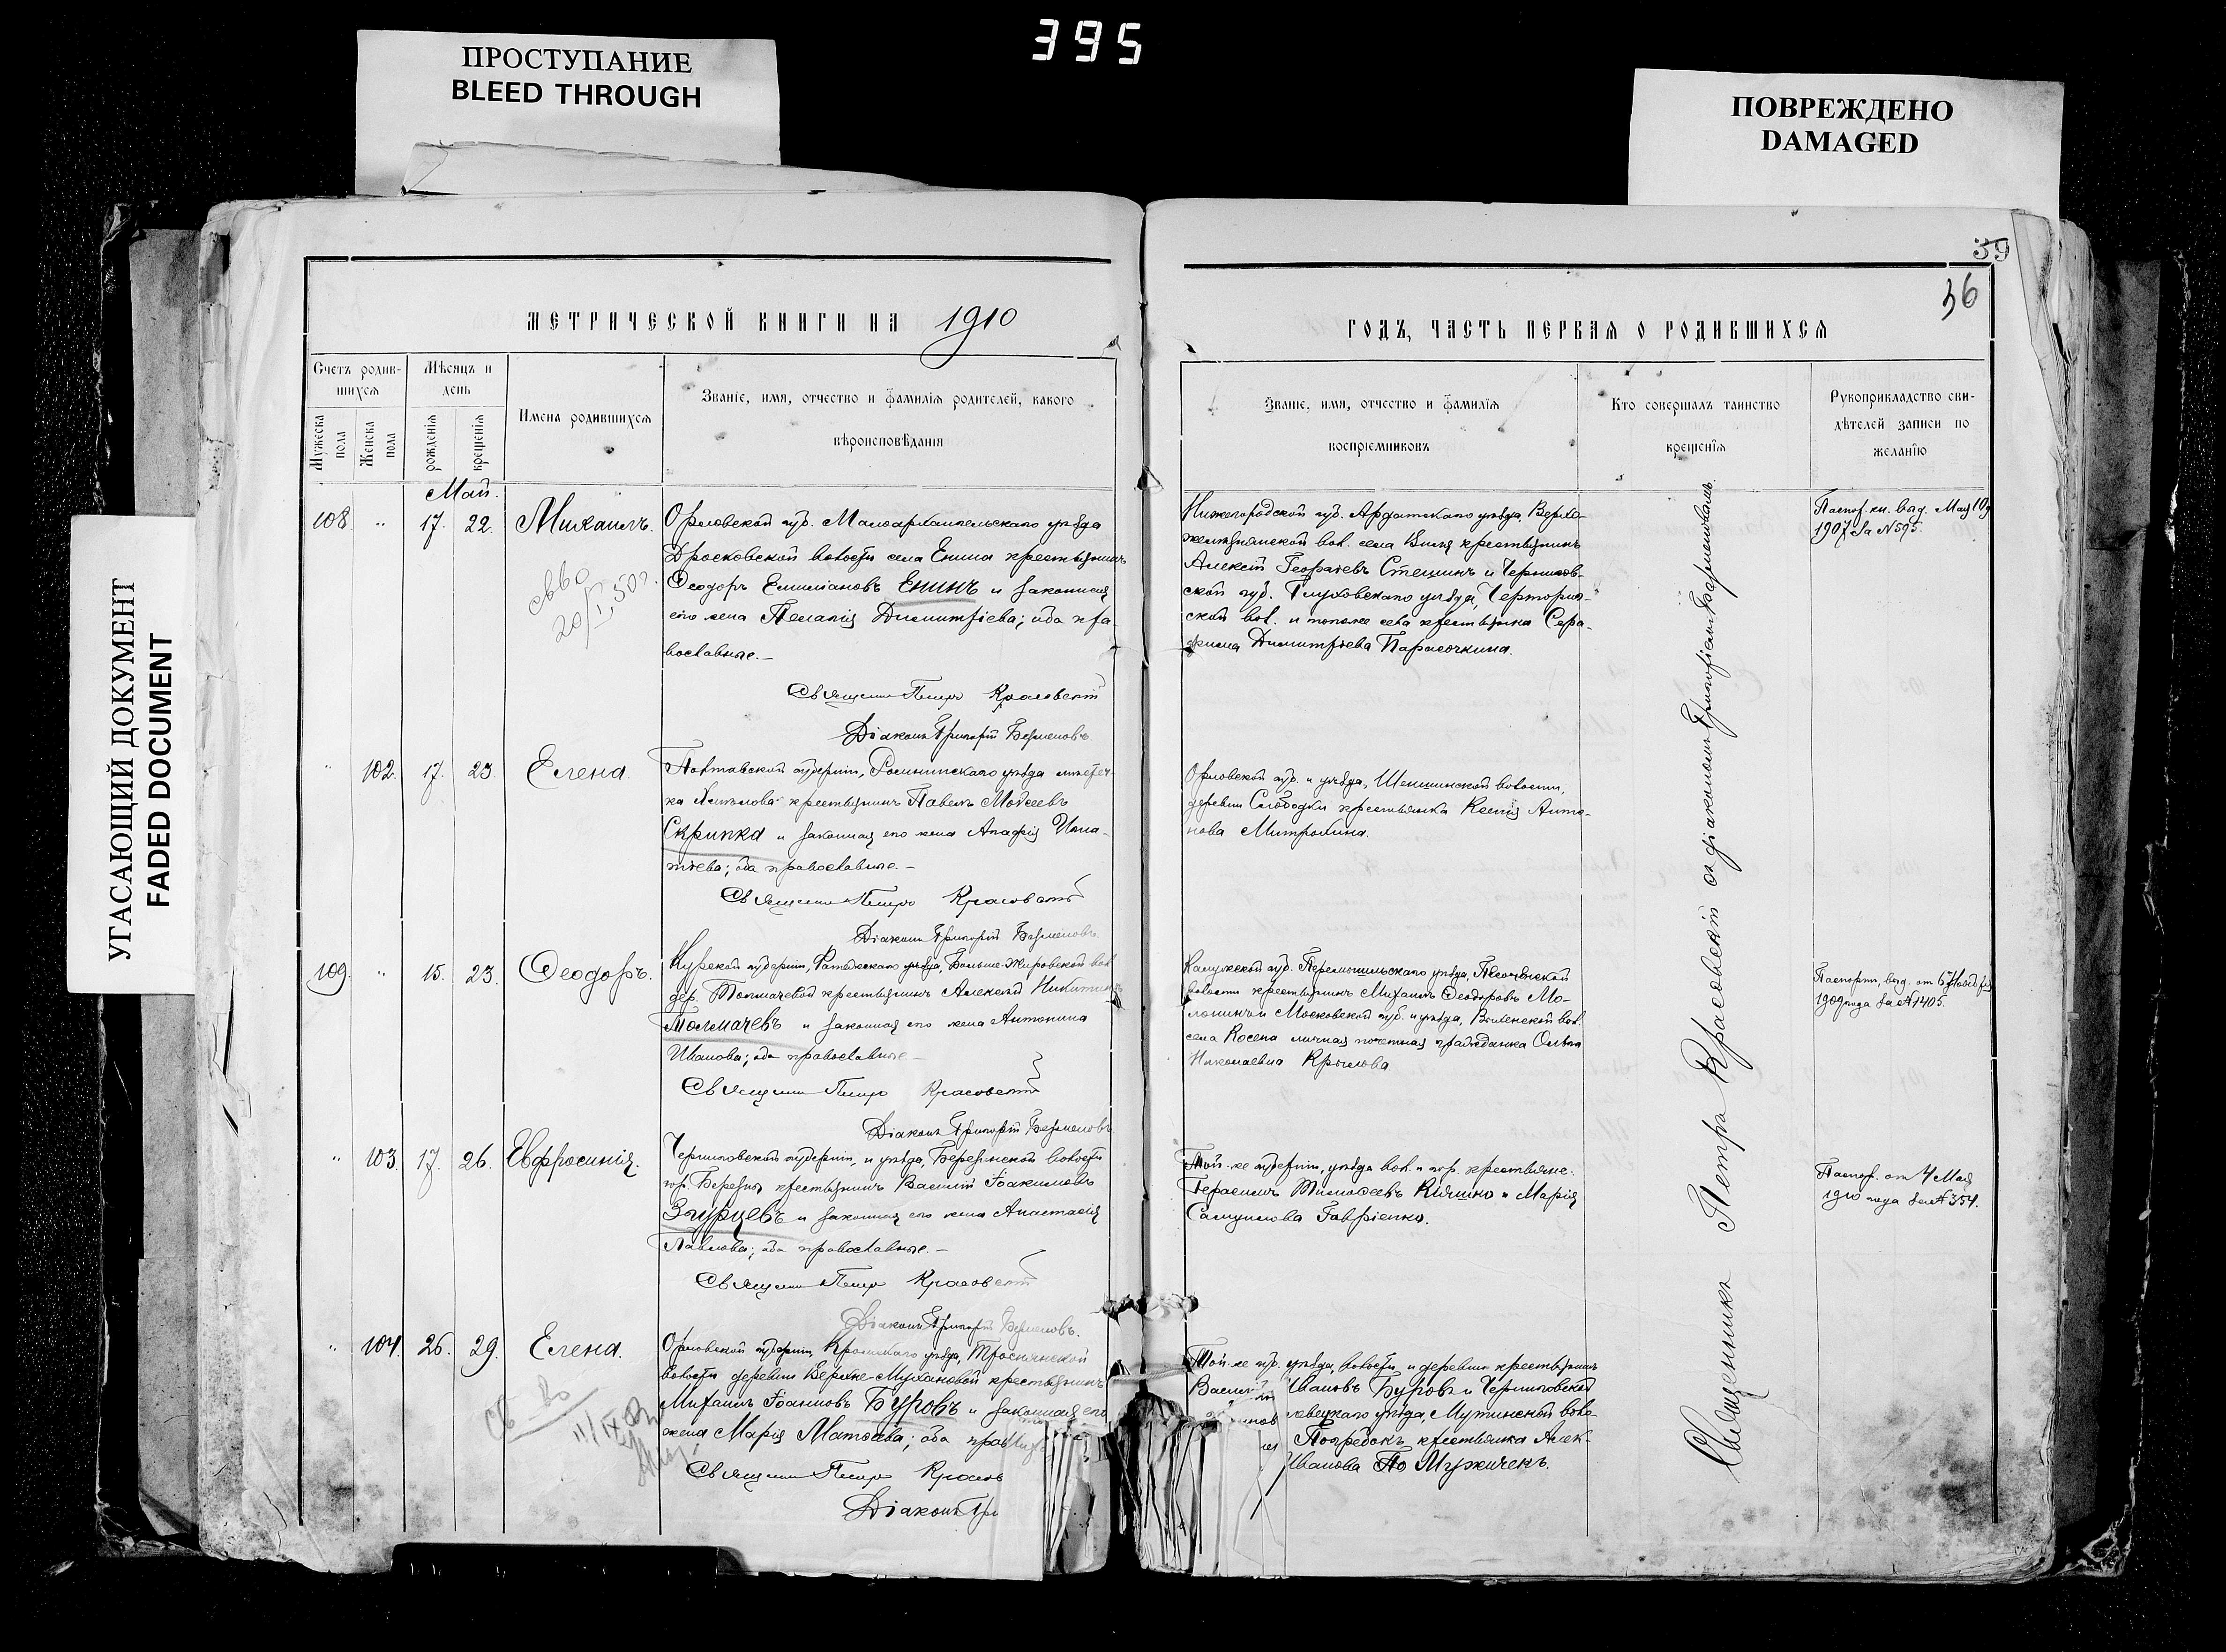 395
ПРОСТУПАНИЕ
BLEED THROUGH
ПОВРЕЖДЕНО
DAMAGED
УГАСАЮЩИЙ ДОКУМЕНТ
FADED DOCUMENT
39
36
МЕТРИЧЕСКОЙ КНИГИ НА 1910
Счетъ родив-
шихся
Мужеска пола
Женска пола
Мѣсяцъ и
день
рожденія
крещенія
Имена родившихся
Званіе, имя, отчество и фамилія родителей, какого
вѣроисповѣданія
Май.
108. " 17. 22. Михаилъ.
Орловской губ. Малоархангельскаго уѣзда
Дросковской волости села Енина крестьянинъ
Ѳеодоръ Емиліановъ Енинъ и законная
его жена Пелагія Димитріева; оба пра-
вославные.-
Священникъ Петръ Красовскій
Діаконъ Григорій
" 102. 17. 23. Елена.
Полтавской губерніи, Роменскаго уѣзда мѣстеч-
ка крестьянинъ Павелъ Моѵсеевъ
Скрипка и законная его жена Агафія Игна-
тіева; оба православные.-
Священникъ Петръ Красовскій
Діаконъ Григорій
109. " 15. 23. Ѳеодоръ.
Курской губерніи, Фатежскаго уѣзда, Больше-Жировской вол.
дер. Толмачевой крестьянинъ Алексѣй Никитинъ
Толмачевъ и законная его жена Антонина
Иванова; оба православные-
Священникъ Петръ Красовскій
Діаконъ Григорій
" 103. 17. 26. Евфросинія.
Черниговской губерніи, и уѣзда, Березинской волости
гор. Березны крестьянинъ Василій Іоакимовъ
Згурцевъ и законная его жена Анастасія
Павлова; оба православные.-
Священникъ Петръ Красовскій
Діаконъ Григорій
" 104. 26. 29. Елена.
Орловской губерніи, Кромскаго уѣзда, Троснянской
волости деревни Верхне-Мухановой крестьянинъ
Михаилъ Іоанновъ Буровъ и законная его
жена Марія Матѳеева; оба прав
Священникъ Петръ Красов
Діаконъ Гри
ГОДЪ, ЧАСТЬ ПЕРВАЯ О РОДИВШИХСЯ
Званіе, имя, отчество и фамилія
воспріемниковъ
Кто совершалъ таинство
крещенія
Рукоприкладство сви-
дѣтелей записи по
желанію
Нижегородской губ. Ардатскаго уѣзда, Верхо-
вол. села крестьянинъ
Алексѣй Георгіевъ Стешинъ и Чернигов-
ской губ. Глуховскаго уѣзда, Черториг-
ской вол. и того же села крестьянка Сера-
фима Димитріева Парасочкина.
Паспор. кн. выд. Мая 10
1907 за № 595.
Орловской губ. и уѣзда, волости,
деревни Слободки крестьянка Ксенія Анто-
нова Митрохина.
Калужской губ. Перемышльскаго уѣзда,
волости крестьянинъ Михаилъ Ѳеодоровъ Мо-
и Московской губ. и уѣзда, вол.
села Косена личная почетная гражданка Ольга
Николаевна Крылова
Паспортъ, выд. от 6
1909 года за № 1405.
Той-же губерніи, уѣзда вол. и гор. крестьяне:
Герасимъ Тимоѳеевъ Кіяшко и Марія
Самуилова Гавріенко.
Паспор. от 4 Мая
1910 года за № 354.
Той-же губ. уѣзда, волости и деревни крестьянинъ
Васил Ивановъ Буровъ и Черниговской
левецкаго уѣзда, Мутинской воло-
крестьянка Алек-
Иванова Мужиченъ.
Священникъ Петръ Красовскій съ діакономъ Григоріемъ